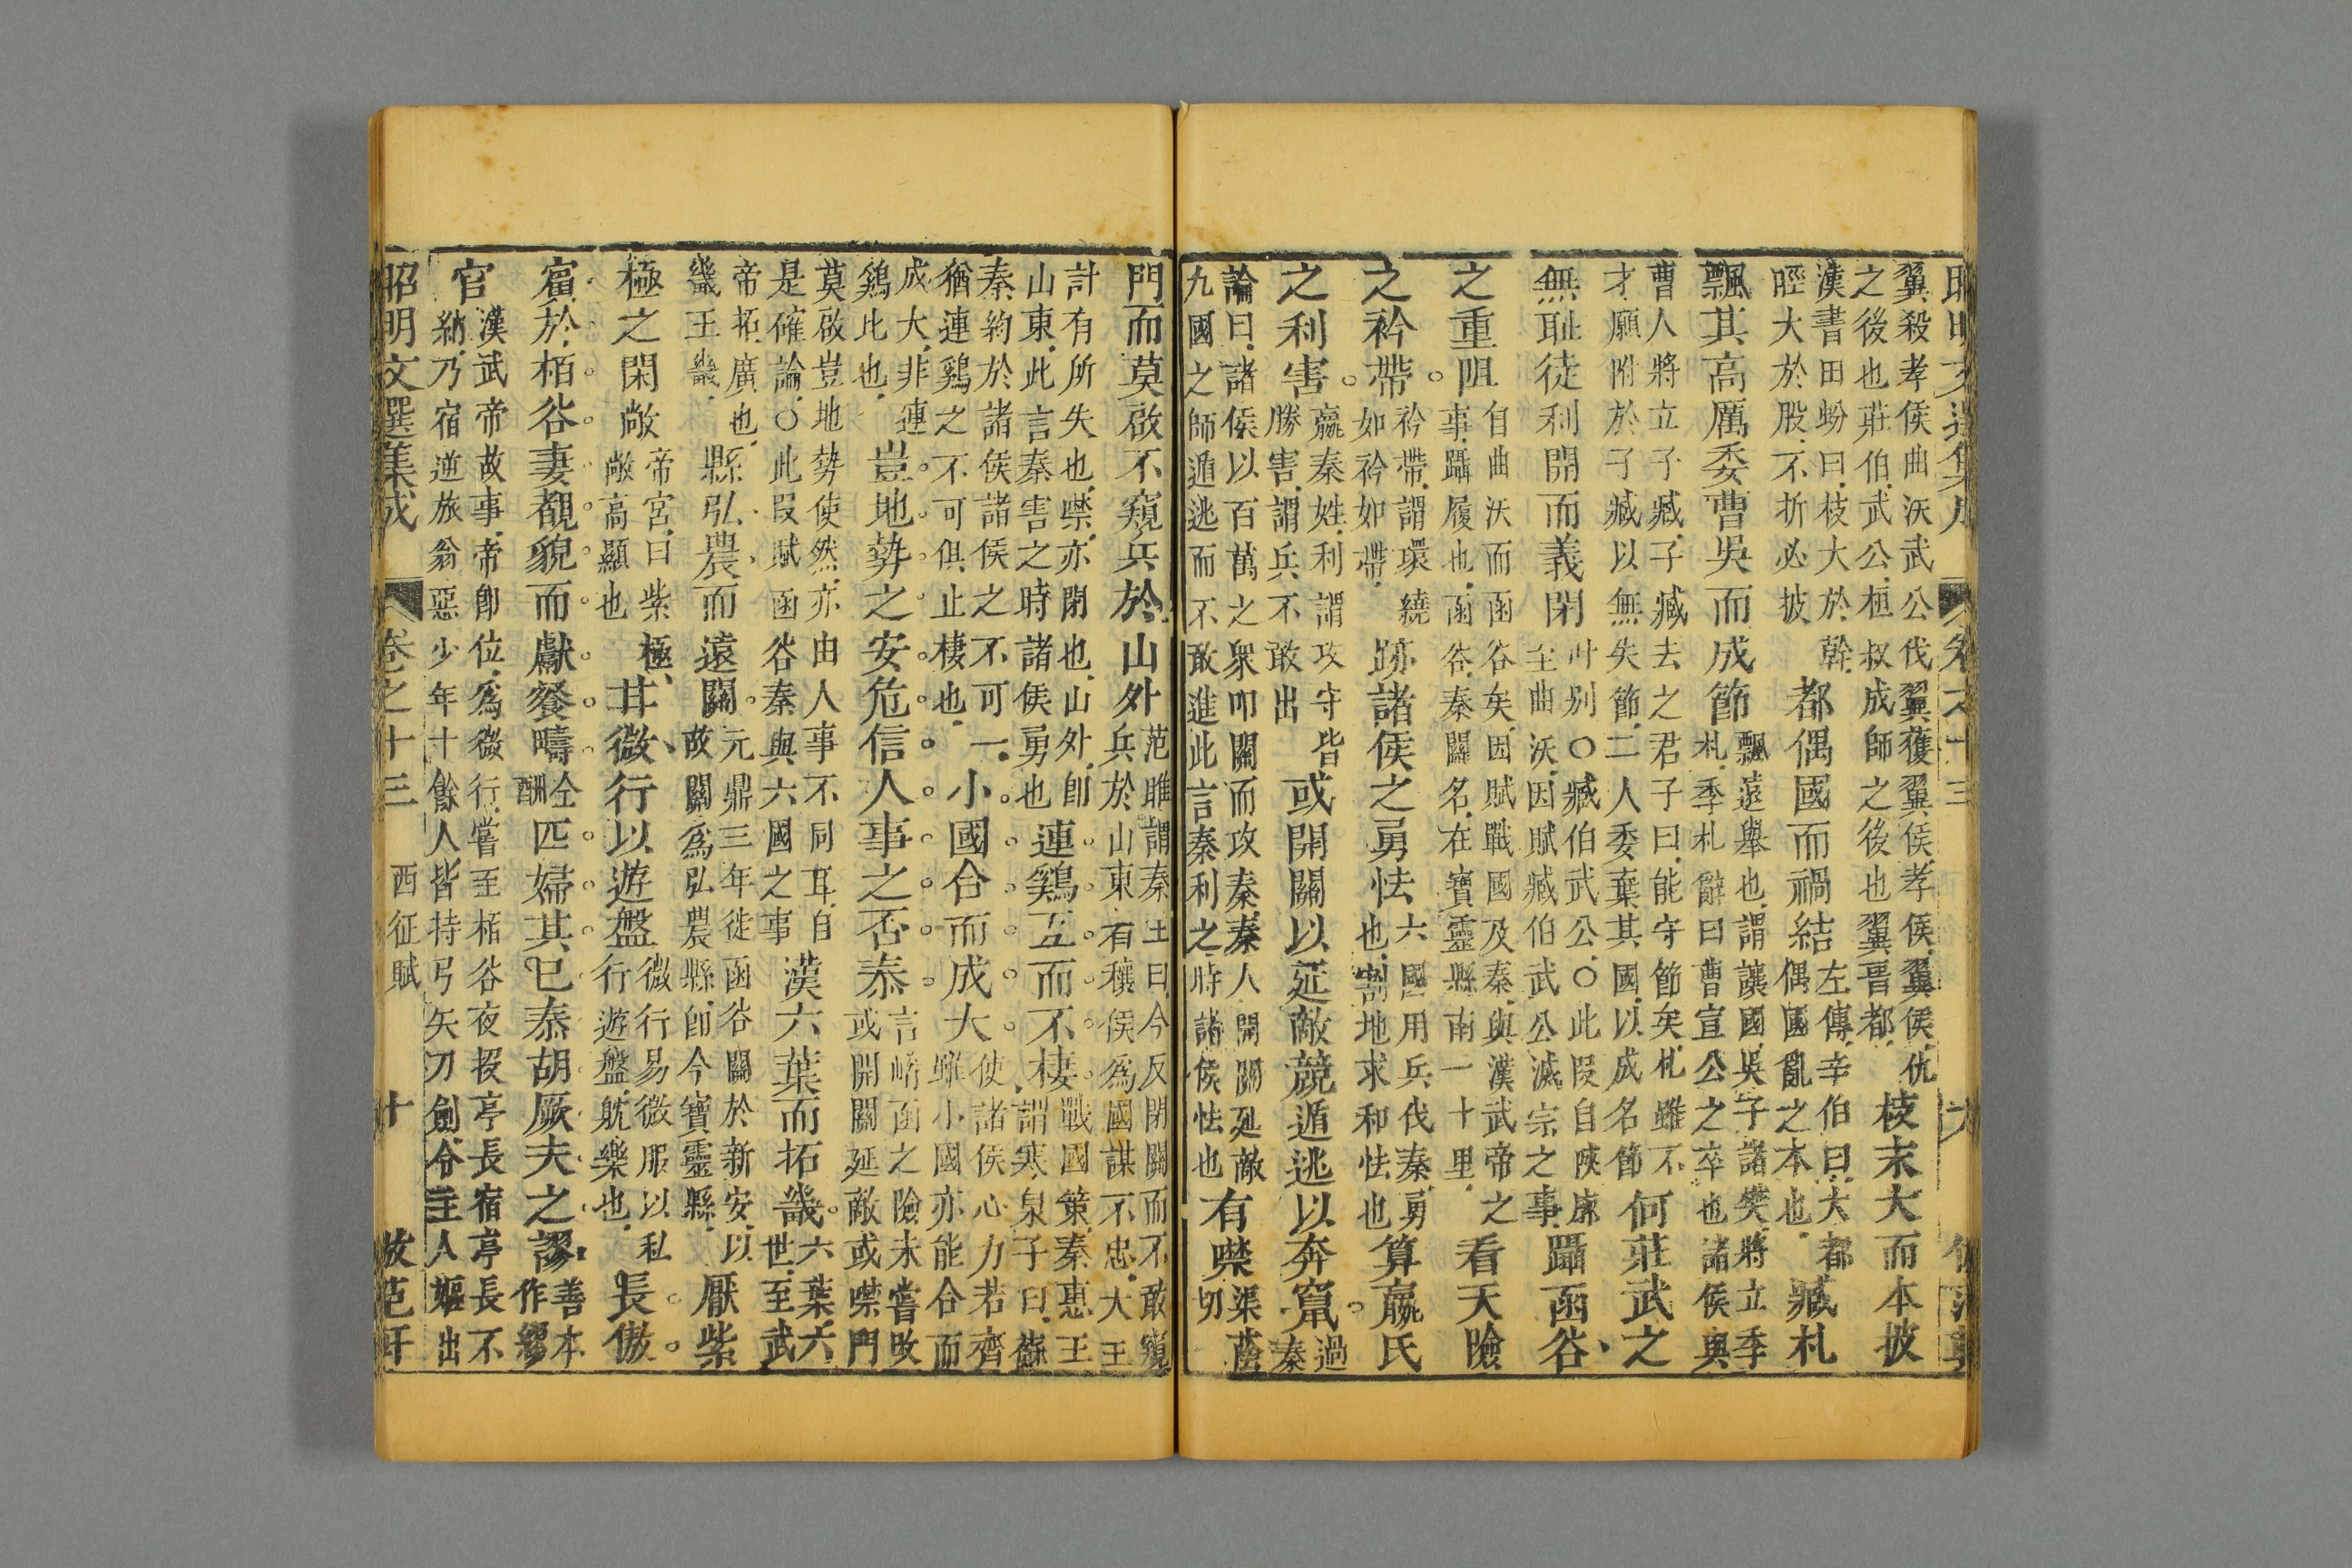 昭明文選集成 卷之十三 六
翼殺孝侯曲沃武公伐翼獲翼侯孝侯翼侯仇
之後也莊伯武公桓叔成師之後也翼晉都
枝末大而本披
漢書田蚡曰枝大於幹
脛大於股不折必披
都偶國而禍結
左傳辛伯曰大都
偶國亂之本也
臧札
飄其高厲委曹吳而成節
飄遠舉也謂讓國吳子諸樊將立季
札季札辭曰曹宣公之卒也諸侯與
曹人將立子臧子臧去之君子曰能守節矣札雖不
才願附於子臧以無失節二人委棄其國以成名節
何莊武之
無恥徒利開而義閉
叶别〇臧伯武公〇此段自陝廓
至曲沃因賦臧伯武公滅宗之事
躡函谷
之重阻
自曲沃而函谷矣因賦戰國及秦與漢武帝之
事躡履也函谷秦關名在寶靈縣南一十里
看天險
之衿帶
衿帶謂環繞
如衿如帶
跡諸侯之勇怯
六國用兵伐秦勇
也割地求和怯也
算嬴氏
之利害
嬴秦姓利謂攻守皆
勝害謂兵不敢出
或開關以延敵競遁逃以奔竄
過
秦
論曰諸侯以百萬之衆叩關而攻秦秦人開關延敵
九國之師遁逃而不敢進此言秦利之時諸侯怯也
有噤
渠蔭
切
門而莫啟不窺兵於山外
范雎謂秦王曰今反閉關而不敢窺
兵於山東有穰侯為國謀不忠大王
計有所失也噤亦閉也山外即
山東此言秦害之時諸侯勇也
連鷄互而不棲
戰國策秦惠王
謂寒泉子曰蘇
秦約於諸侯諸侯之不可一
猶連鷄之不可俱止棲也
小國合而成大
使諸侯心力若齊
雖小國亦能合而
成大非連
鷄比也
豈地勢之安危信人事之否泰
言崤函之險未嘗改
或開關延敵或噤門
莫啟豈地勢使然亦由人事不同耳自
是確論〇此段賦函谷秦與六國之事
漢六葉而拓畿
六葉六
世至武
帝拓廣也
畿王畿
縣弘農而遠關
元鼎三年徙函谷關於新安以
故關為弘農縣即今寶靈縣
厭紫
極之閑敞
帝宮曰紫
敞高顯也
極甘微行以遊盤
微行易微服以私
行遊盤躭樂也
長傲
賓於栢谷妻覩貌而獻餐疇
仝
酬
匹婦其已泰胡厥夫之謬
善本
作繆
官
漢武帝故事帝即位為微行嘗至栢谷夜投亭長宿亭長不
納乃宿逆旅翁惡少年十餘人皆持弓矢刀劍令主人嫗出
昭明文選集成 卷之十三 西征賦 十